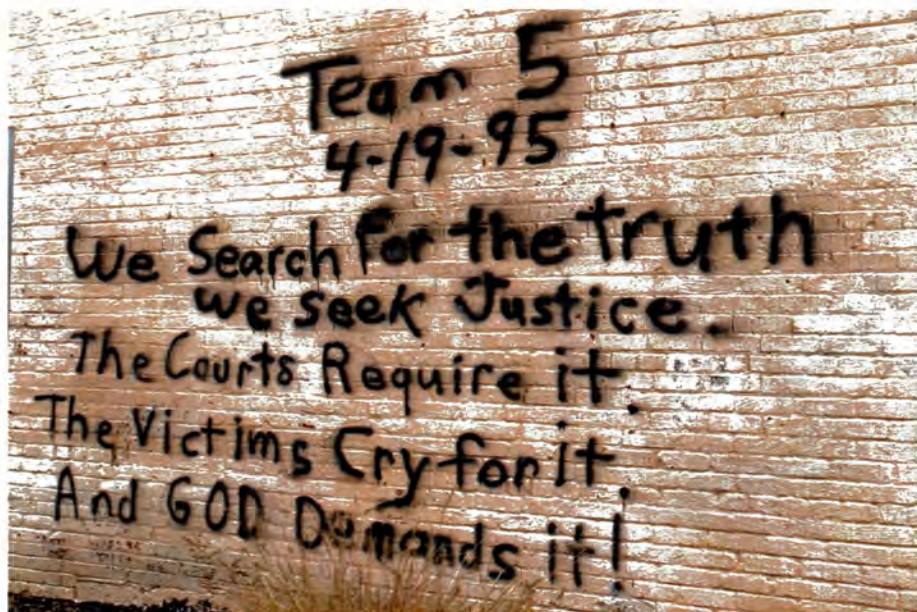 Team 5
4-19-95
We Search for the truth
we seek Justice.
The Courts Require it.
The Victims Cry for it.
And GOD Demands it!